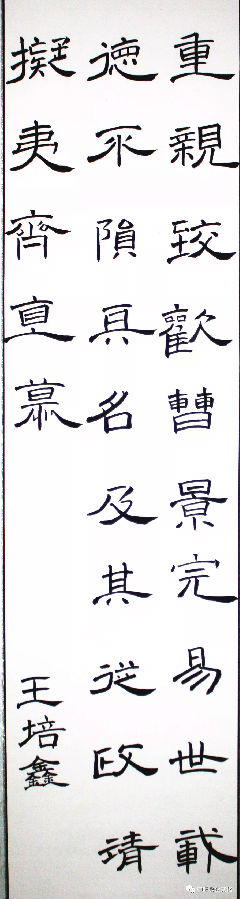 重親致歡曹景完易世載
德不隕其名及其從政清
擬夷齊直慕
王培鑫